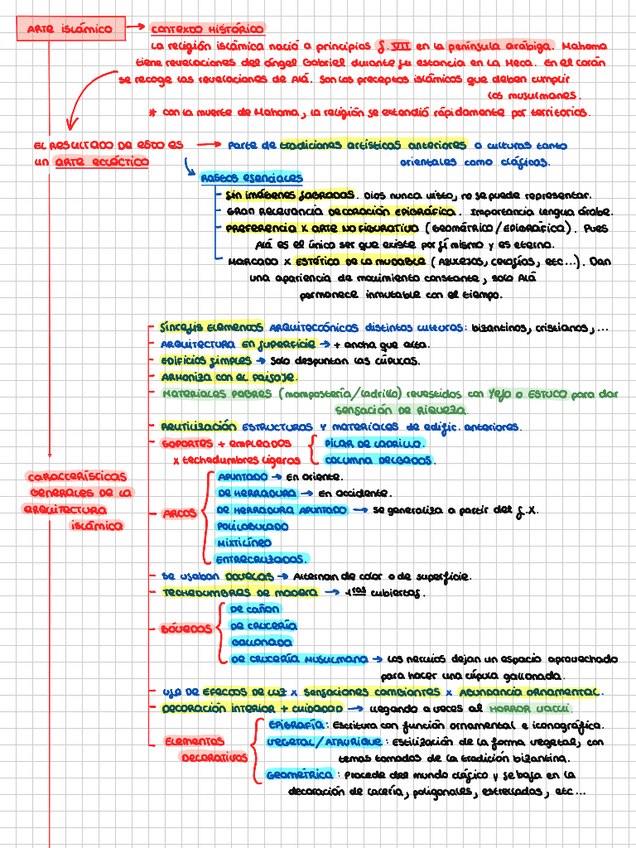 ARTE ISLÁMICO → CONTEXTO HISTÓRICO
La religión islámica nació a principios S.VII en la península arábiga. Mahoma
tiene revelaciones del ángel Gabriel durante su estancia en La Meca. En el corán
se recoge las revelaciones de Alá. Son los preceptos islámicos que deben cumplir
los musulmanes.
* con la muerte de Mahoma, la religión se extendió rápidamente por territorios.
EL RESULTADO DE ESTO ES → Parte de tradiciones artísticas anteriores a culturas tanto
UN ARTE ECLÉCTICO orientales como clásicas.
RASGOS ESENCIALES
Sin imágenes sagradas. Dios nunca visto, no se puede representar.
Gran relevancia DECORACIÓN EPIGRÁFICA. Importancia lengua árabe.
PREFERENCIA X ARTE NO FIGURATIVO (GEOMÉTRICO/EPIGRÁFICA). Pues
Alá es el único ser que existe por sí mismo y es eterno.
MARCADO X ESTÉTICA DE LO MUDABLE (AZULEJOS, CELOSÍAS, ETC...). Dan
una apariencia de movimiento constante, solo Alá
permanece inmutable con el tiempo.
CARACTERÍSTICAS
GENERALES DE LA
ARQUITECTURA
ISLÁMICA
Síntesis elementos ARQUITECTÓNICOS distintas culturas: bizantinos, cristianos, ...
ARQUITECTURA EN SUPERFICIE → + ancha que alta.
EDIFICIOS SIMPLES → Solo despuntan las cúpulas.
ARMONIZA CON EL PAISAJE.
MATERIALES POBRES (mampostería/ladrillo) revestidos con YESO O ESTUCO para dar
SENSACIÓN DE RIQUEZA.
REUTILIZACIÓN ESTRUCTURAS Y MATERIALES DE EDIFIC. ANTERIORES.
SOPORTES + EMPLEADOS { PILAR DE LADRILLO.
X TECHEDUMBRES LIGERAS COLUMNA DELGADOS.
ARCOS {
APUNTADO → En oriente.
DE HERRADURA → en occidente.
DE HERRADURA APUNTADO → Se generaliza a partir del S.X.
POLILOBULADO
MIXTILÍNEO
ENTRECRUZADOS.
Se usaban DOVELAS → Alternan de color o de superficie.
TECHEDUMBRES DE MADERA → 1ras cubiertas.
BÓVEDAS {
DE CAÑÓN
DE CRUCERÍA
GALLONADA
DE CRUCERÍA MUSULMANA → Los nervios dejan un espacio aprovechado
para hacer una cúpula gallonada.
USO DE EFECTOS DE LUZ X SENSACIONES CAMBIANTES X ABUNDANCIA ORNAMENTAL.
DECORACIÓN INTERIOR + CUIDADAD → Llegando a veces al HORROR VACUI.
ELEMENTOS
DECORATIVOS {
EPIGRAFÍA: Escritura con función ornamental e iconográfica.
VEGETAL/ATAURIQUE: Estilización de la forma vegetal, con
temas tomados de la tradición bizantina.
GEOMÉTRICA: Procede del mundo clásico y se basa en la
decoración de lacería, poligonales, estrellados, etc...